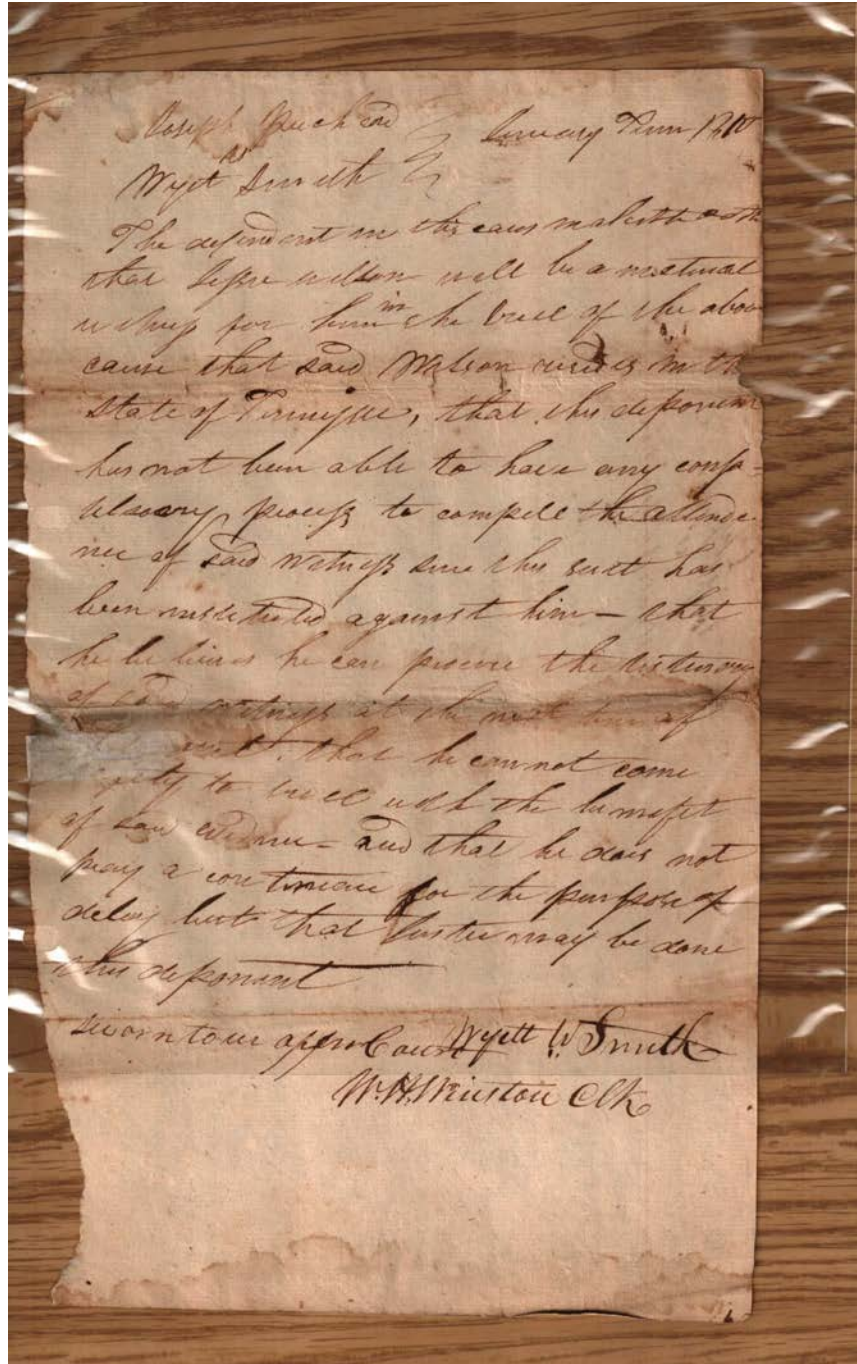 Joseph
January Term 1810
vs
Wyet Smith
The defendent in this caus maketh oath
that Jesse wilson will be a material
witness for him in the triell of the above
cause that said Wilson resides in the
State of Tennessee, that this deponent
has not been able to have any comp-
ulsoery process to compell the attenda-
nce of said witness since this suit has
been institutid against him — that
he believes he can procure the testimony
of said witness at the next term of
that he cannot come
to triell without the benefit
of said evidence — and that he does not
pray a continuance for the purpose of
delay but that Justice may be done
this deponent
Sworn to in open Court Wyett W Smith
W. H. Winston Clk